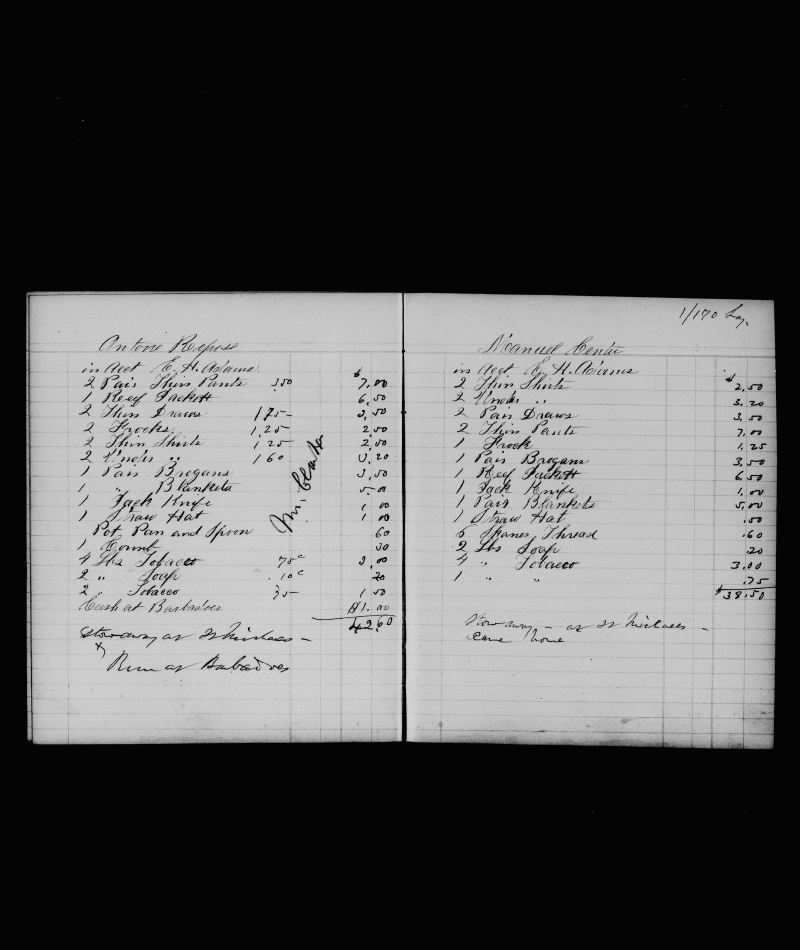 Antone
in Acct E. H. Adams
$
2 Pair Thin Pants 350 7,00
1 Reef Jackett 6,50
2 Thin Draws 175- 3,50
2 Frocks 1,25 2,50
2 Thin Shirts 1 25 2,50
2 Under " 1 60 3,20
1 Pair Brogans 3,50
1 " Blankets 5,00
1 Jack Knife 1 00
1 Straw Hat 1 00
Pot Pan and Spoon 60
1 Comb 30
4 lbs Tobacco 75c 3,00
2 " Soap 10c 20
2 " Tobacco 75 1 50
Cash at Barbadoes $1.00
42.60
Stowaway at St
x
Run at Barbadoes
Mr.
1/170 Lay.
Manuel
in Acct E. H. Adams
$
2 Thin Shirts 2,50
2 Under " 3.20
2 Pair Draws 3,50
2 Thin Pants 7,00
1 Frock 1.25
1 Pair Brogans 3,50
1 Reef Jackett 6,50
1 Jack Knife 1,00
1 Pair Blankets 5,00
1 Straw Hat .50
Skanes Thread .60
2 lbs Soap .20
4 " Tobacco 3.00
1 " " .75
$38.50
Stowaway - at St -
came home